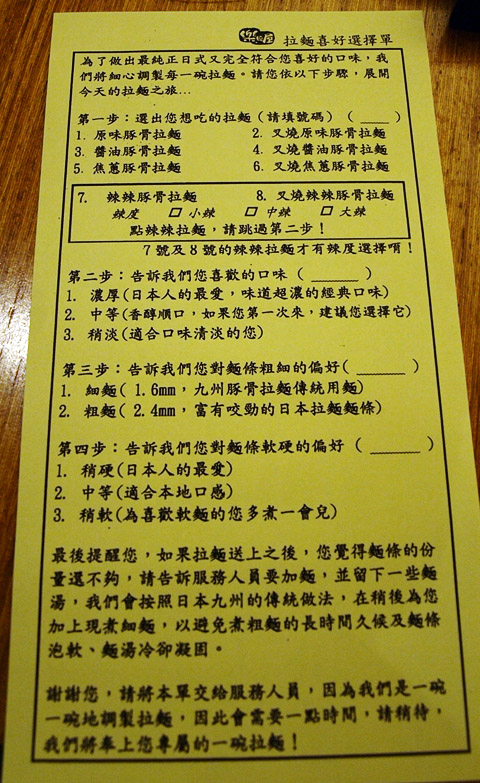 拉麵喜好選擇單
為了做出最純正日式又完全符合您喜好的口味，我
們將細心調製每一碗拉麵。請您依以下步驟，展開
今天的拉麵之旅…
第一步：選出您想吃的拉麵（請填號碼）（ ____ ）
1. 原味豚骨拉麵 2. 叉燒原味豚骨拉麵
3. 醬油豚骨拉麵 4. 叉燒醬油豚骨拉麵
5. 焦蔥豚骨拉麵 6. 叉燒焦蔥豚骨拉麵
7. 辣辣豚骨拉麵 8. 叉燒辣辣豚骨拉麵
辣度 □ 小辣 □ 中辣 □ 大辣
點辣辣拉麵，請跳過第二步！
7號及8號的辣辣拉麵才有辣度選擇唷！
第二步：告訴我們您喜歡的口味（ ______ ）
1. 濃厚(日本人的最愛，味道超濃的經典口味)
2. 中等(香醇順口，如果您第一次來，建議您選擇它)
3. 稍淡(適合口味清淡的您)
第三步：告訴我們您對麵條粗細的偏好( ______ )
1. 細麵( 1.6mm，九州豚骨拉麵傳統用麵)
2. 粗麵( 2.4mm，富有咬勁的日本拉麵麵條)
第四步：告訴我們您對麵條軟硬的偏好 ( ______ )
1. 稍硬(日本人的最愛)
2. 中等(適合本地口感)
3. 稍軟(為喜歡軟麵的您多煮一會兒)
最後提醒您，如果拉麵送上之後，您覺得麵條的份
量還不夠，請告訴服務人員要加麵，並留下一些麵
湯，我們會按照日本九州的傳統做法，在稍後為您
加上現煮細麵，以避免煮粗麵的長時間久候及麵條
泡軟、麵湯冷卻凝固。
謝謝您，請將本單交給服務人員，因為我們是一碗
一碗地調製拉麵，因此會需要一點時間，請稍待，
我們將奉上您專屬的一碗拉麵！